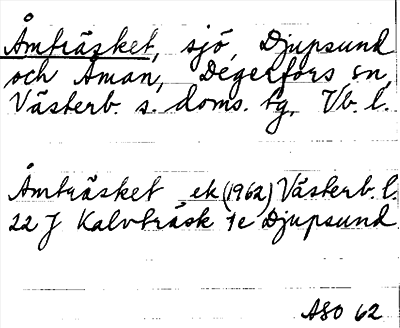 Åmträsket, sjö, Djupsund
och Åman, Degerfors sn,
Västerb. s. doms. tg, Vb. l.
Åmträsket ek (1962) Västerb. l.
22 J Kalvträsk 1e Djupsund
ASO 62